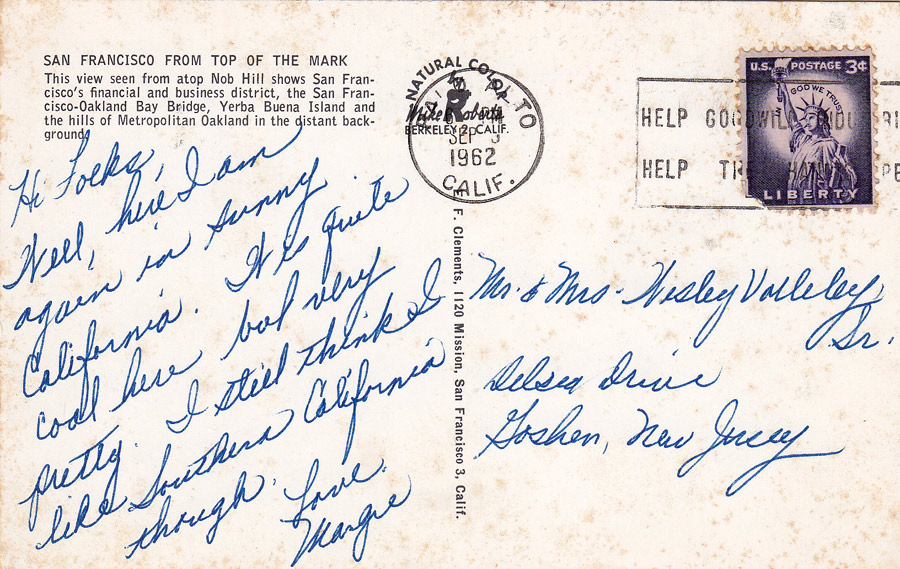 SAN FRANCISCO FROM TOP OF THE MARK
This view seen from atop Nob Hill shows San Fran-
cisco's financial and business district, the San Fran-
cisco-Oakland Bay Bridge, Yerba Buena Island and
the hills of Metropolitan Oakland in the distant back-
ground.
Hi Folks,
Well, here I am
again in sunny
California. It is quite
cool here but very
pretty. I still think I
like Southern California
though. Love.
Margie
NATURAL COLOR
Mike Roberts
BERKELEY 2, CALIF.
PALO ALTO
SEP 5
1962
CALIF.
E. F. Clements, 1120 Mission, San Francisco 3, Calif.
HELP GOODWILL
HELP THE
U.S. POSTAGE 3¢
IN GOD WE TRUST
LIBERTY
Mr. & Mrs. Wesley
Sr.
Delsea Drive
Goshen, New Jersey